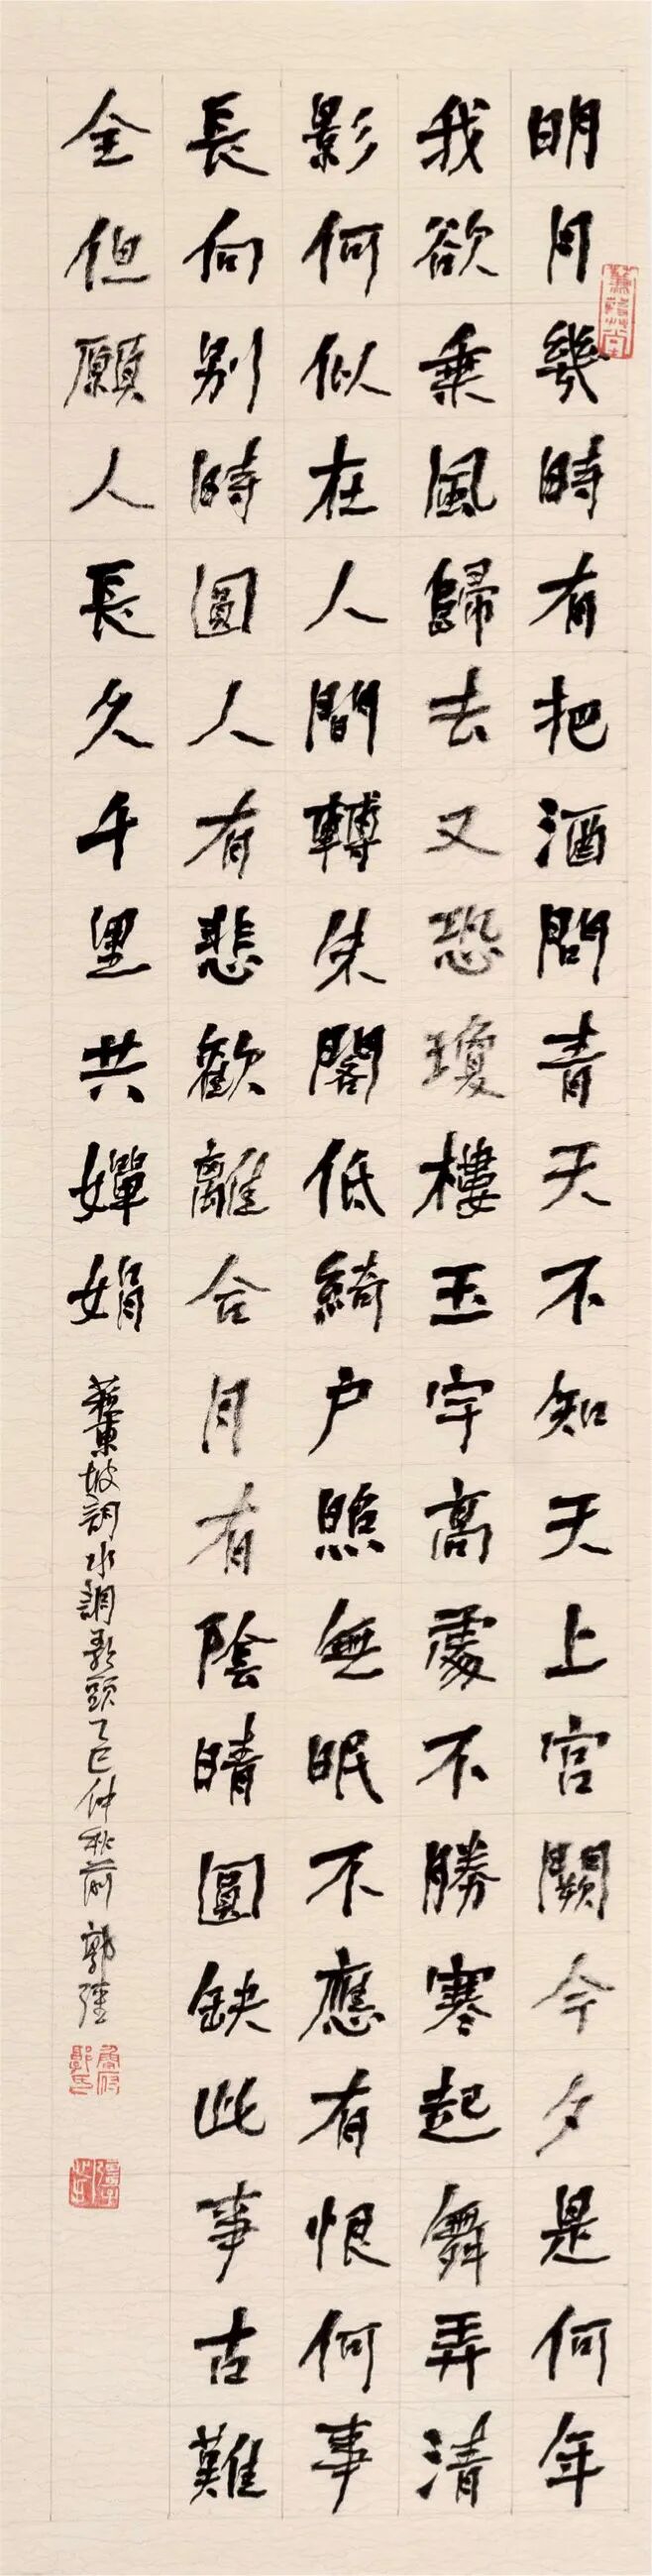 明月幾時有把酒問青天不知天上宮闕今夕是何年
我欲乘風歸去又恐瓊樓玉宇高處不勝寒起舞弄清
影何似在人間轉朱閣低綺户照無眠不應有恨何事
長向别時圓人有悲歡離合月有陰晴圓缺此事古難
全但願人長久千里共嬋娟
蘇東坡詞水調歌頭乙巳仲秋前 郭強